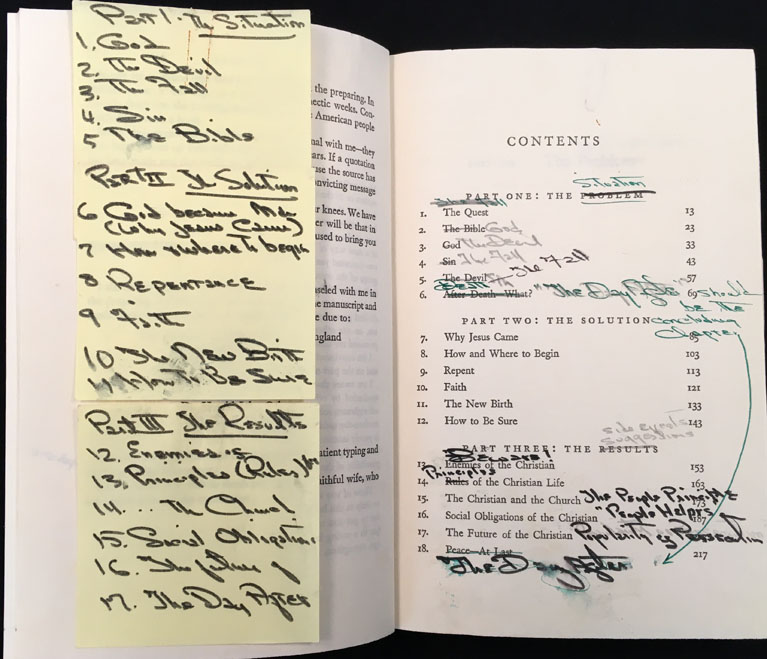 Part I. The Situation
1. God
2. The Devil
3. The Fall
4. Sin
5 The Bible
Part II The Solution
6 God became Man
(Why Jesus Came)
7 How & where to begin
8 Repentance
9 Faith
10 The New Birth
11 How to Be Sure
Part III The Results
12. Enemies is
13. Principles (Rules)
14... The Church
15. Social Obligations
16. The future of
17. The Day After
the preparing. In
hectic weeks. Con-
American people
nal with me—they
ars. If a quotation
use the source has
nvicting message
r knees. We have
er will be that in
used to bring you
nseled with me in
e manuscript and
e due to:
ngland
atient typing and
aithful wife, who
CONTENTS
Situation
PART ONE: THE PROBLEM
The Fall
1. The Quest 13
2. The Bible God 23
3. God The Devil 33
4. Sin The Fall 43
5. The Devil Sin The Fall 57
Death
6. After Death—What? "The Day After" should 69
be the
concluding
chapter
PART TWO: THE SOLUTION
7. Why Jesus Came 85
8. How and Where to Begin 103
9. Repent 113
10. Faith 121
11. The New Birth 133
12. How to Be Sure 143
suggestions
PART THREE: THE RESULTS
13. Enemies of the Christian 153
Principles
14. Rules of the Christian Life 163
15. The Christian and the Church The People Principle 173
16. Social Obligations of the Christian "People Helpers 187
17. The Future of the Christian Popularity or Persecution
18. Peace—At Last 217
The Day After